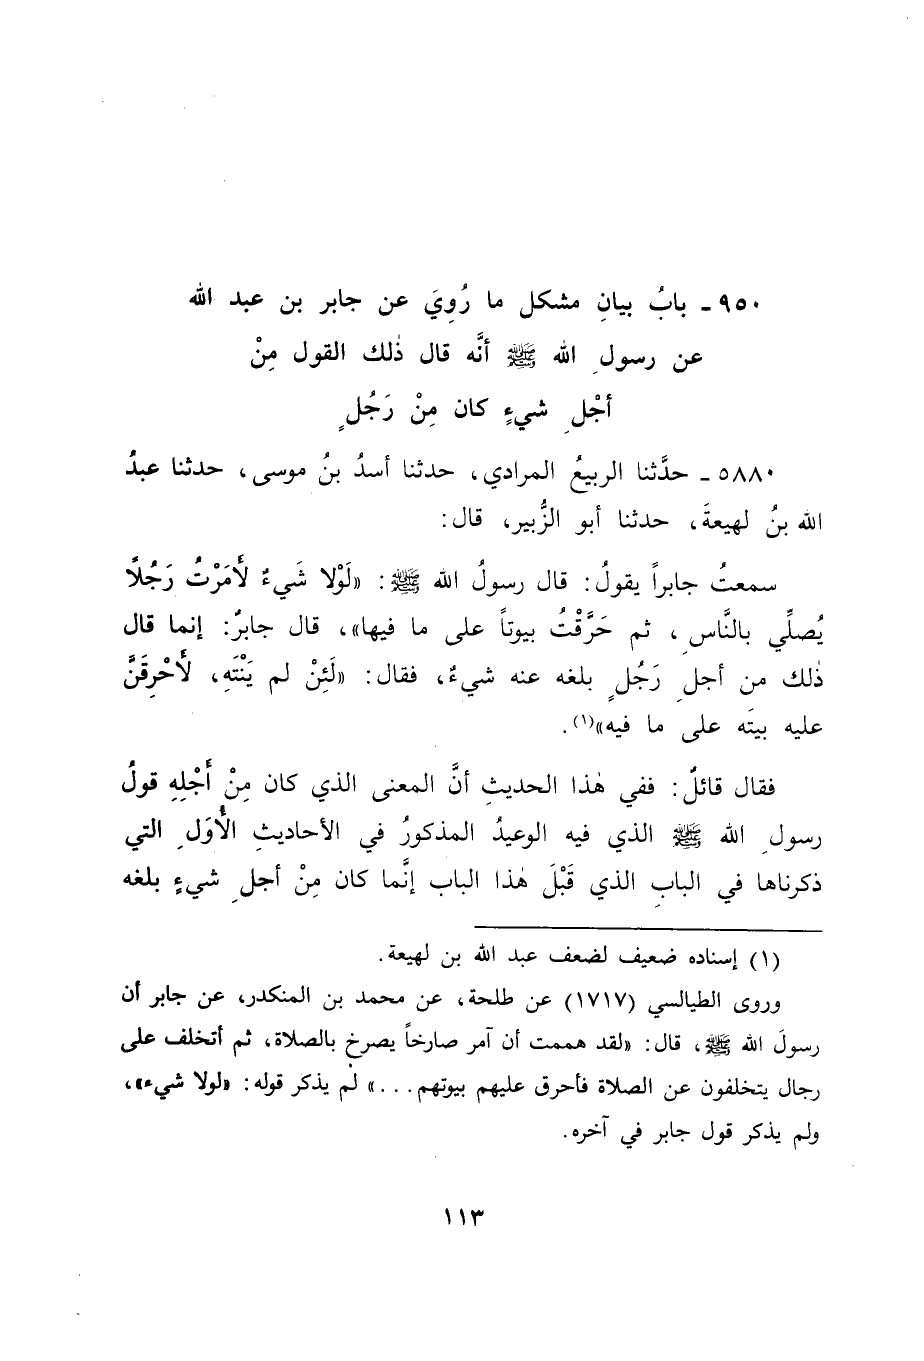 ٩٥٠ـ بابُ بيانِ مشكل ما رُوِيَ عن جابر بن عبد الله
عن رسولِ الله ﷺ أنَّه قال ذٰلك القول مِنْ
أجْلِ شيءٍ كان مِنْ رَجُلٍ
٥٨٨٠ـ حدَّثنا الربيعُ المرادي، حدثنا أسدُ بنُ موسى، حدثنا عبدُ
الله بنُ لهيعةَ، حدثنا أبو الزُّبير، قال:
سمعتُ جابراً يقولُ: قال رسولُ الله ﷺ: «لَوْلا شَيءٌ لأَمَرْتُ رَجُلاً
يُصلِّي بالنَّاسِ، ثم حَرَّقْتُ بيوتاً على ما فيها»، قال جابرٌ: إنما قال
ذٰلك من أجلِ رَجُلٍ بلغه عنه شيءٌ، فقال: «لَئِنْ لم يَنْتَهِ، لأَحْرِقَنَّ
عليه بيتَه على ما فيه»(١).
فقال قائلٌ: ففي هٰذا الحديثِ أنَّ المعنى الذي كان مِنْ أَجْلِهِ قولُ
رسولِ الله ﷺ الذي فيه الوعيدُ المذكورُ في الأحاديثِ الأُوَلِ التي
ذكرناها في البابِ الذي قَبْلَ هٰذا الباب إنَّما كان مِنْ أجلِ شيءٍ بلغه
(١) إسناده ضعيف لضعف عبد الله بن لهيعة.
وروى الطيالسي (١٧١٧) عن طلحة، عن محمد بن المنكدر، عن جابر أن
رسولَ الله ﷺ، قال: «لقد هممت أن آمر صارخاً يصرخ بالصلاة، ثم أتخلف على
رجال يتخلفون عن الصلاة فأحرق عليهم بيوتهم...» لم يذكر قوله: «لولا شيء»،
ولم يذكر قول جابر في آخره.
١١٣